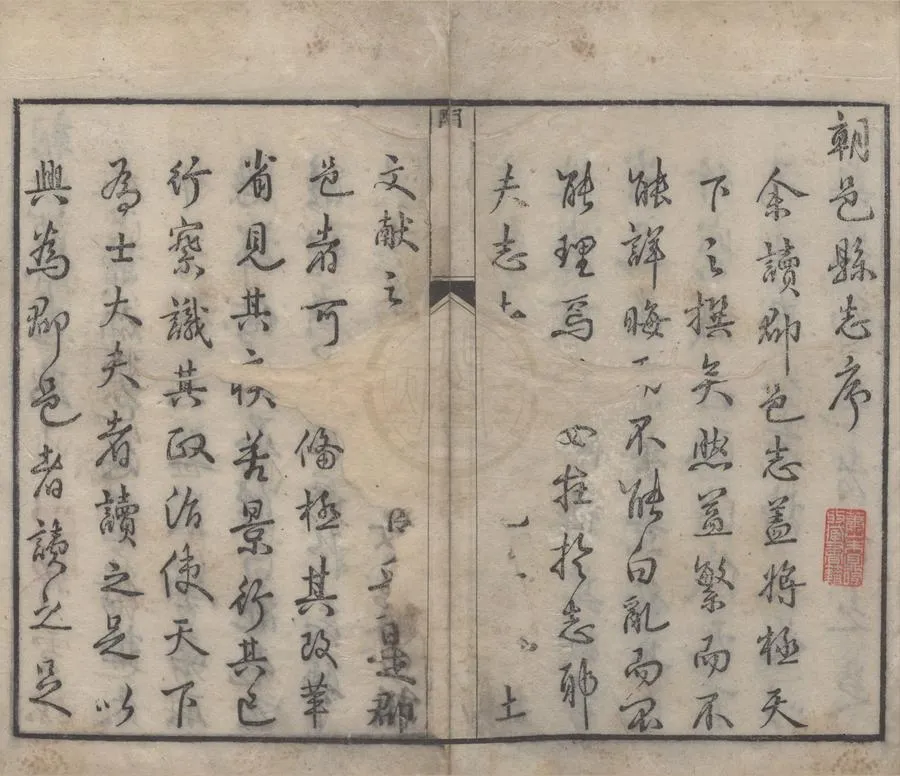 朝邑縣志序
余讀郡邑志蓋將極天
下之撰矣然益繁而不
能詳晦而不能白亂而罔
能理焉 必在於志耶
夫志 土
文献之 是郡
邑者可 脩極其改革
省見其 善景行其已
行察識其政治使天下
為士大夫者讀之足以
興為郡邑者讀之足